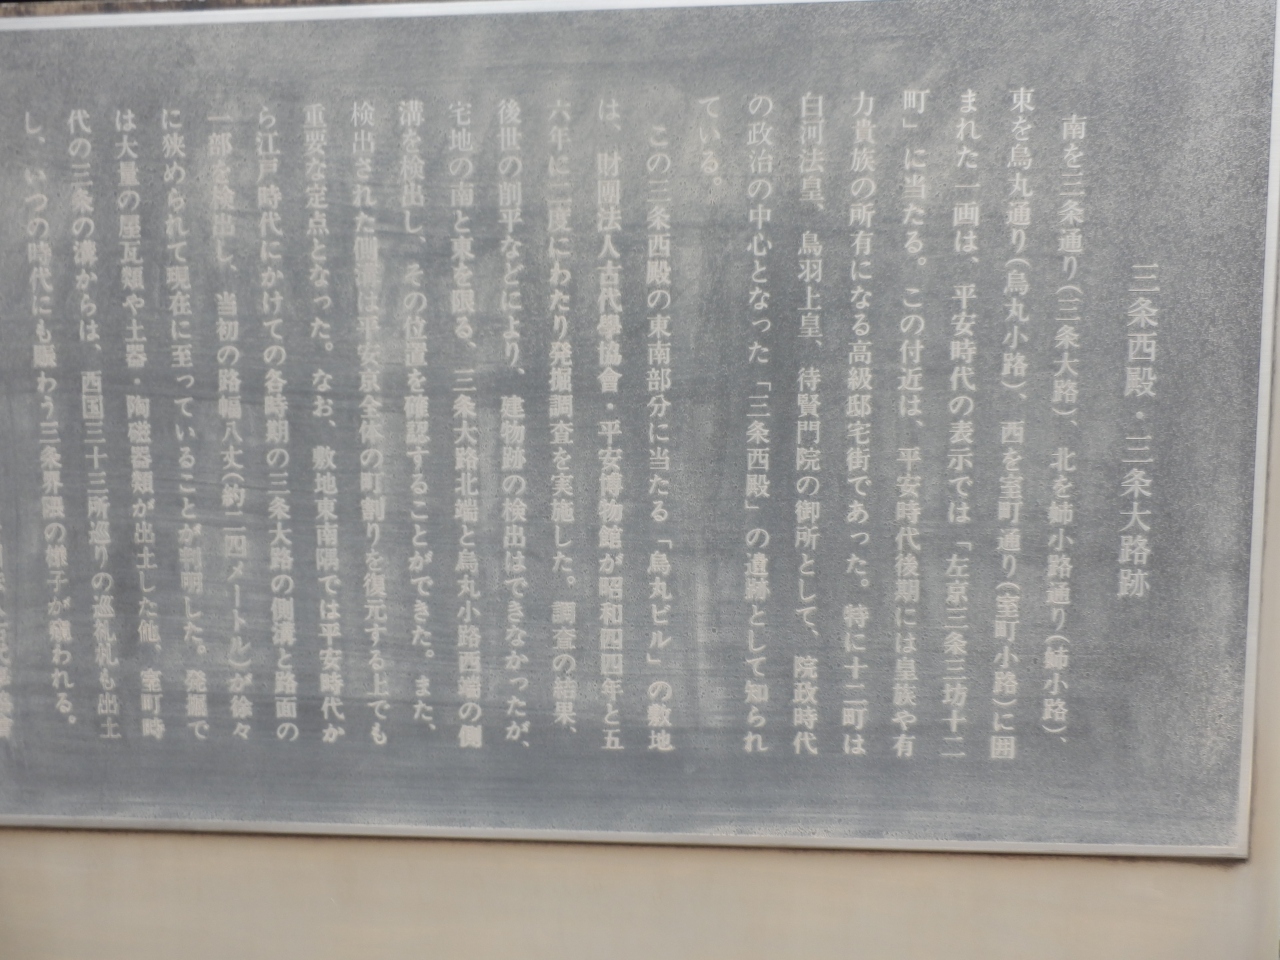 三条西殿・三条大路跡
南を三条通り(三条大路)、北を姉小路通り(姉小路)、
東を烏丸通り(烏丸小路)、西を室町通り(室町小路)に囲
まれた一画は、平安時代の表示では「左京三条三坊十二
町」に当たる。この付近は、平安時代後期には皇族や有
力貴族の所有になる高級邸宅街であった。特に十二町は
白河法皇、鳥羽上皇、待賢門院の御所として、院政時代
の政治の中心となった「三条西殿」の遺跡として知られ
ている。
この三条西殿の東南部分に当たる「烏丸ビル」の敷地
は、財團法人古代學協會・平安博物館が昭和四四年と五
六年に二度にわたり発掘調査を実施した。調査の結果、
後世の削平などにより、建物跡の検出はできなかったが、
宅地の南と東を限る、三条大路北端と烏丸小路西端の側
溝を検出し、その位置を確認することができた。また、
検出された側溝は平安京全体の町割りを復元する上でも
重要な定点となった。なお、敷地東南隅では平安時代か
ら江戸時代にかけての各時期の三条大路の側溝と路面の
一部を検出し、当初の路幅八丈(約二四メートル)が徐々
に狭められて現在に至っていることが判明した。発掘で
は大量の屋瓦類や土器・陶磁器類が出土した他、室町時
代の三条の溝からは、西国三十三所巡りの巡礼札も出土
し、いつの時代にも賑わう三条界隈の様子が窺われる。